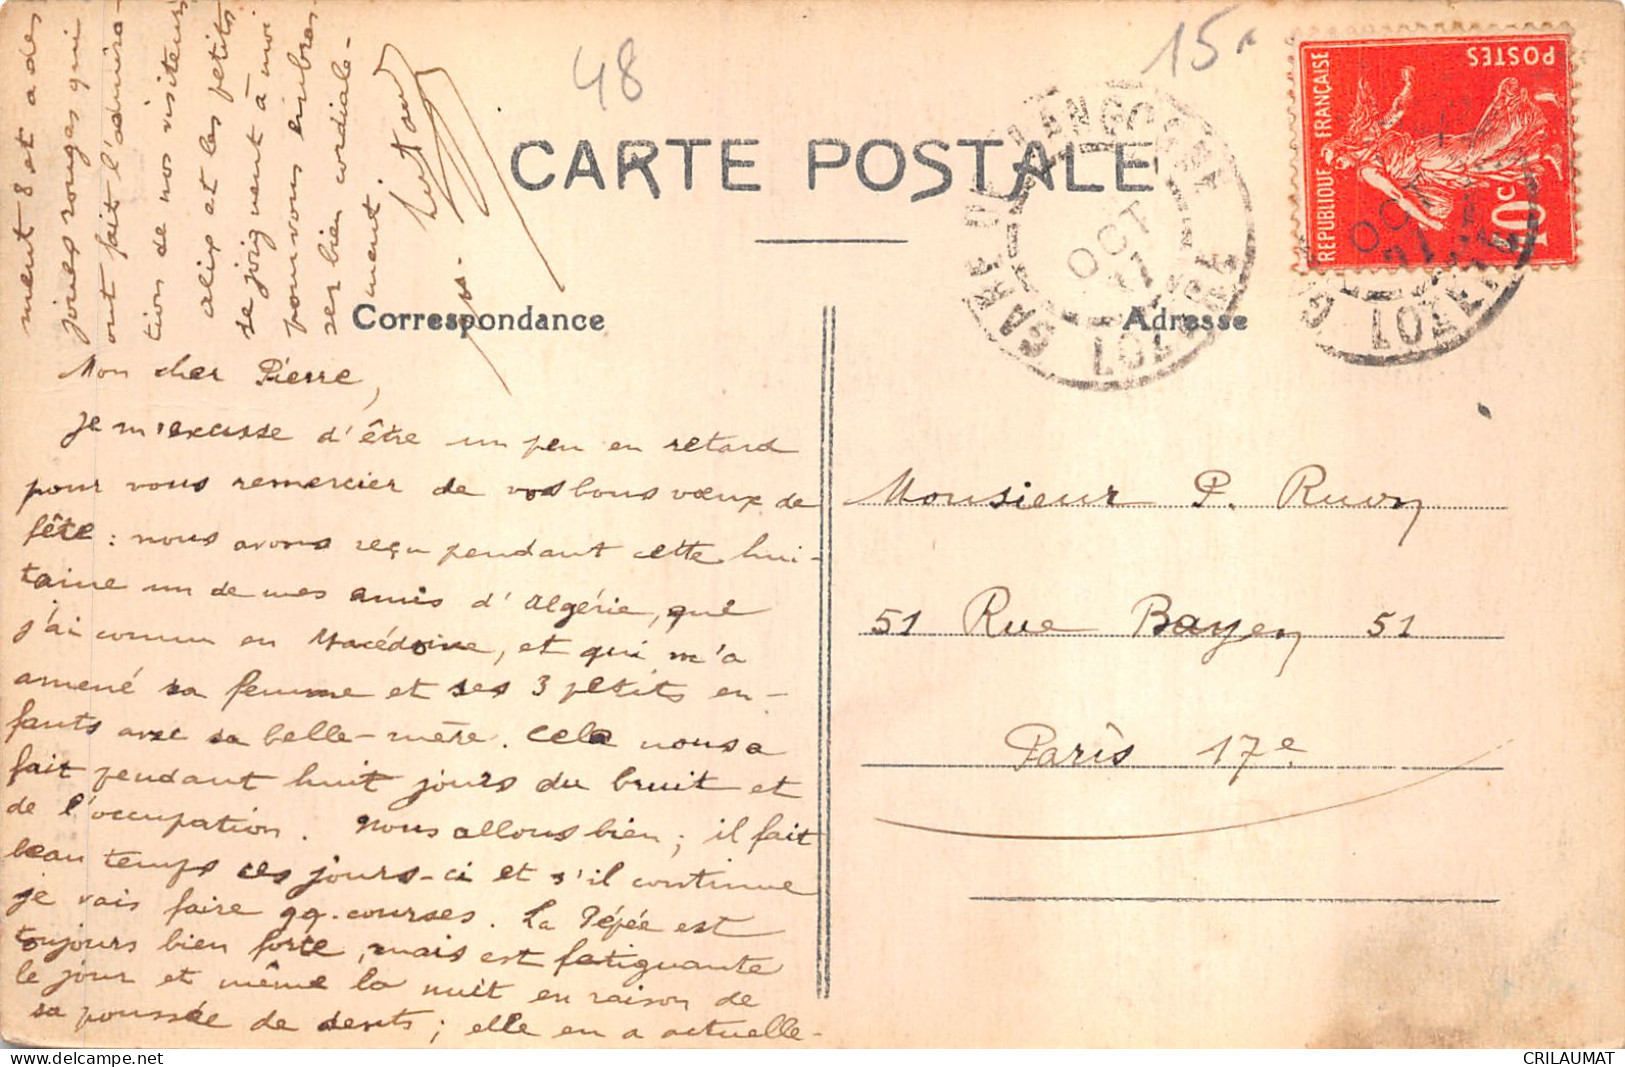 48
15
CARTE POSTALE
Correspondance
Adresse
REPUBLIQUE FRANÇAISE
POSTES
10c
GARE DE LANGOGNE
OCT
LOZERE
Mon cher Pierre,
Je m'excuse d'être un peu en retard
pour vous remercier de vos bons vœux de
fête : nous avons reçu pendant cette hui-
taine un de mes amis d'Algérie, que
j'ai connu en Macédoine, et qui m'a
amené sa femme et ses 3 petits en-
fants avec sa belle-mère. Cela nous a
fait pendant huit jours du bruit et
de l'occupation. Nous allons bien ; il fait
beau temps ces jours-ci et s'il continue
je vais faire qq. courses. La Pépée est
toujours bien forte, mais est fatiguante
le jour et même la nuit en raison de
sa poussée de dents ; elle en a actuelle-
ment 8 et a des
joues rouges qui
ont fait l'admira-
tion de nos visiteurs
Alix et les petits
se joignent à moi
pour vous embras-
ser bien cordiale-
ment.
Monsieur P. Ruon
51 Rue Bayen 51
Paris 17e
CRILAUMAT